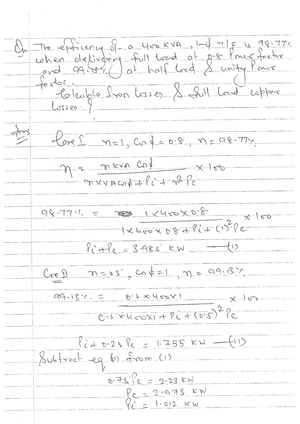 Qn The efficency of a 400 KVA, 1mf T/F is 98.77%
when delivering full load at 0.8 Power factor
and 99.13% at half load & unity Power
factor.
Calculate Iron losses & full load copper
losses?
Ans
Case I n=1, Cosϕ = 0.8, η = 98.77%
η = n KVA Cosϕ / n KVA Cosϕ + Pi + n² Pc × 100
98.77% = 1×400×0.8 / 1×400×0.8 + Pi + (1)² Pc × 100
Pi + Pc = 3.985 KW —(I)
Case II n = 0.5, Cosϕ = 1, η = 99.13%
99.13% = 0.5×400×1 / 0.5×400×1 + Pi + (0.5)² Pc × 100
Pi + 0.25 Pc = 1.755 KW —(II)
Subtract eq (II) from (I)
0.75 Pc = 2.23 KW
Pc = 2.973 KW
Pi = 1.012 KW